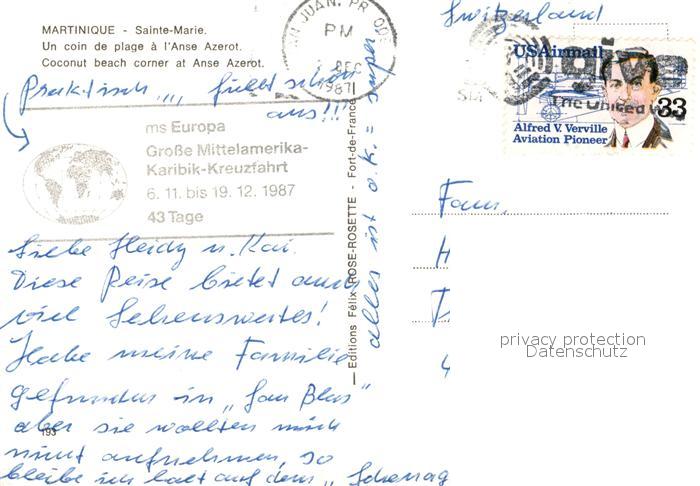 MARTINIQUE - Sainte-Marie.
Un coin de plage à l'Anse Azerot.
Coconut beach corner at Anse Azerot.
Praktisch „„ füllt schön
aus!!!
ms Europa
Große Mittelamerika-
Karibik-Kreuzfahrt
6. 11. bis 19. 12. 1987
43 Tage
Liebe Heidy u. Kai.
Diese Reise bietet auch
viel Sehenswertes!
Habe meine Familie
gefunden in „San Blas"
aber sie wollten mich
nicht aufnehmen, so
bleibe ich halt auf dem „
193
— Editions Félix ROSE-ROSETTE - Fort-de-France
alles ist o.k. =
JUAN, PR
PM
DEC
1987
Switzerland
USAirmail
33
The United Way
Alfred V. Verville
Aviation Pioneer
Fam.
H
privacy protection
Datenschutz